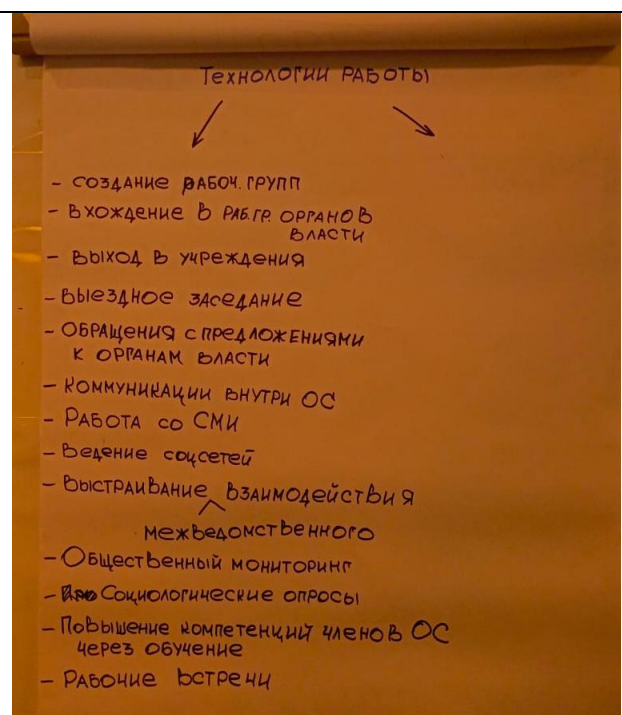 Технологии работы
- Создание рабоч. групп
- Вхождение в раб. гр. органов
власти
- Выход в учреждения
- Выездное заседание
- Обращения с предложениями
к органам власти
- Коммуникации внутри ОС
- Работа со СМИ
- Ведение соцсетей
- Выстраивание взаимодействия
межведомственного
- Общественный мониторинг
- Социологические опросы
- Повышение компетенций членов ОС
через обучение
- Рабочие встречи